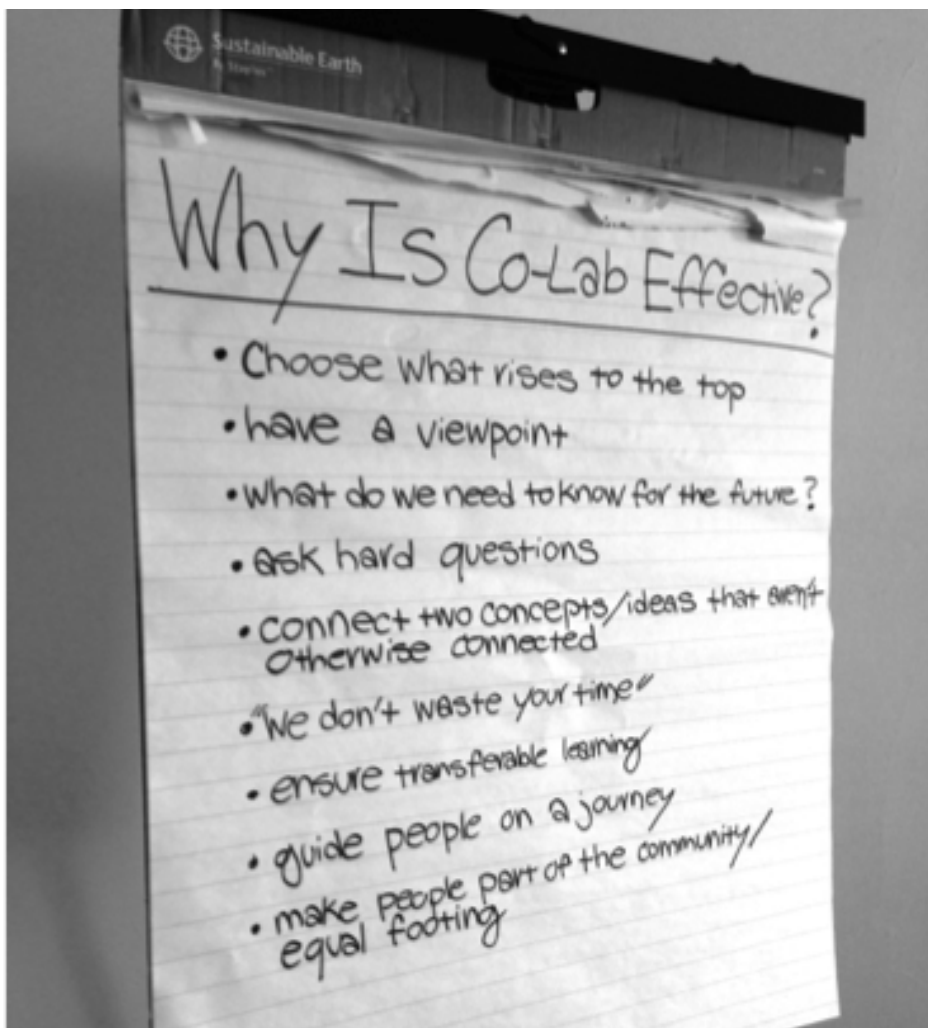 Sustainable Earth
By Staples
Why Is Co-Lab Effective?
• Choose what rises to the top
• have a viewpoint
• what do we need to know for the future?
• ask hard questions
• connect two concepts/ideas that aren't
otherwise connected
• "We don't waste your time"
• ensure transferable learning
• guide people on a journey
• make people part of the community/
equal footing